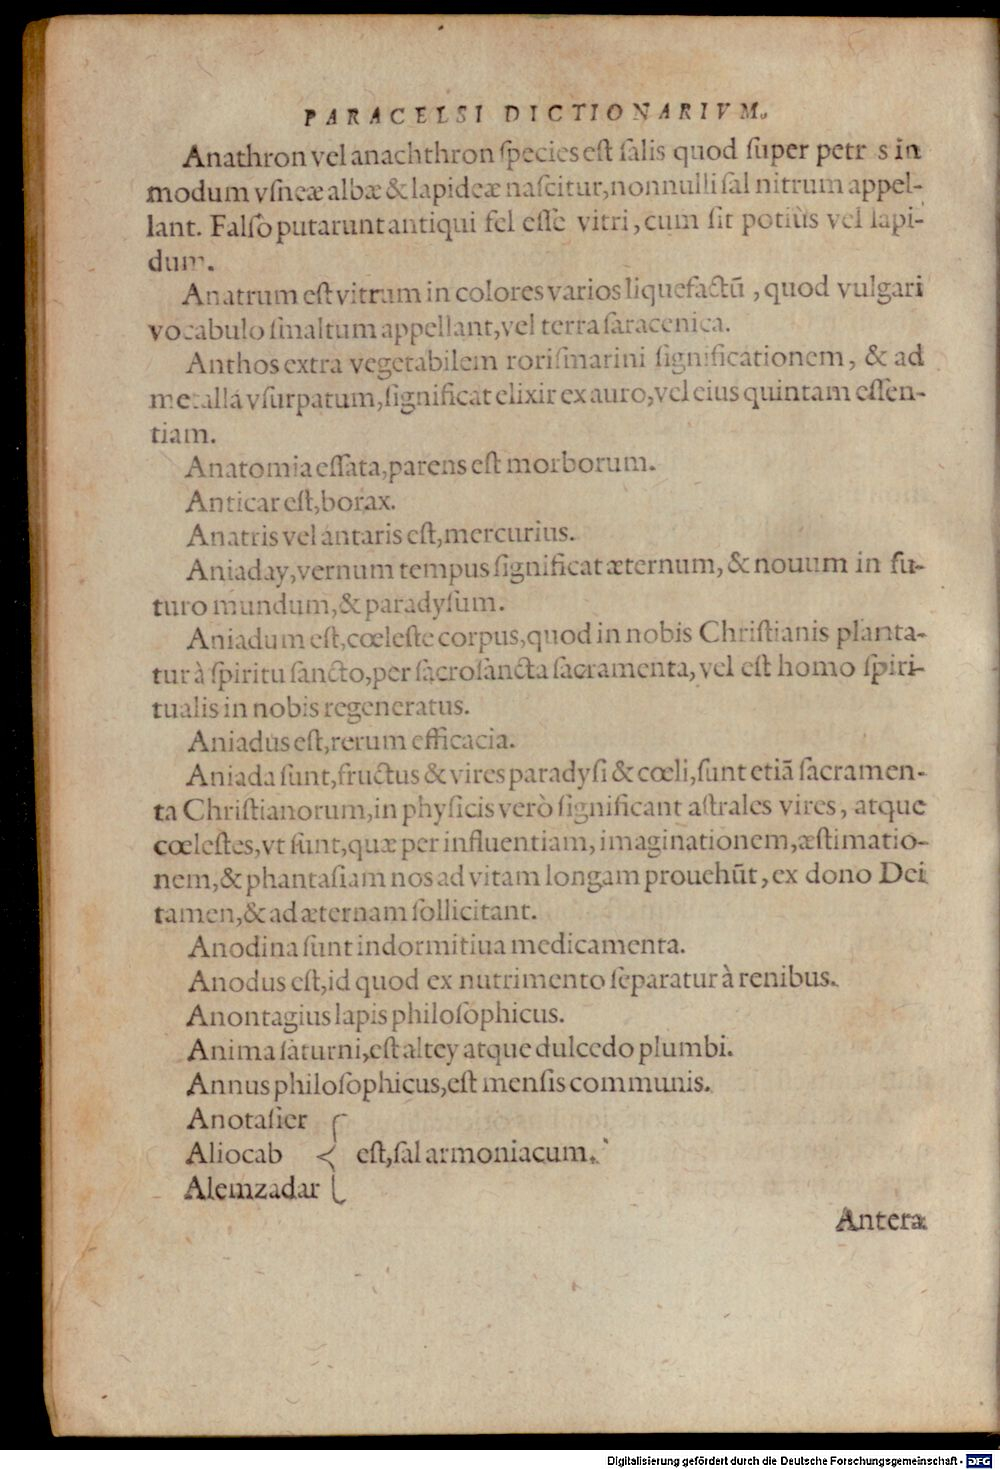 PARACELSI DICTIONARIVM.
Anathron vel anachthron species est salis quod super petr s in
modum vsneæ albæ & lapideæ nascitur, nonnulli sal nitrum appel-
lant. Falsò putarunt antiqui fel esse vitri, cum sit potiùs vel lapi-
dum.
Anatrum est vitrum in colores varios liquefactū, quod vulgari
vocabulo smaltum appellant, vel terra saracenica.
Anthos extra vegetabilem rorismarini significationem, & ad
metalla vsurpatum, significat elixir ex auro, vel eius quintam essen-
tiam.
Anatomia essata, parens est morborum.
Anticar est, borax.
Anatris vel antaris est, mercurius.
Aniaday, vernum tempus significat æternum, & nouum in fu-
turo mundum, & paradysum.
Aniadum est, cœleste corpus, quod in nobis Christianis planta-
tur à spiritu sancto, per sacrosancta sacramenta, vel est homo spiri-
tualis in nobis regeneratus.
Aniadus est, rerum efficacia.
Aniada sunt, fructus & vires paradysi & cœli, sunt etiā sacramen-
ta Christianorum, in physicis verò significant astrales vires, atque
cœlestes, vt sunt, quæ per influentiam, imaginationem, æstimatio-
nem, & phantasiam nos ad vitam longam prouehūt, ex dono Dei
tamen, & ad æternam sollicitant.
Anodina sunt indormitiua medicamenta.
Anodus est, id quod ex nutrimento separatur à renibus.
Anontagius lapis philosophicus.
Anima saturni, est altey atque dulcedo plumbi.
Annus philosophicus, est mensis communis.
Anotasier
Aliocab { est, sal armoniacum.
Alemzadar
Antera
Digitalisierung gefördert durch die Deutsche Forschungsgemeinschaft - DFG